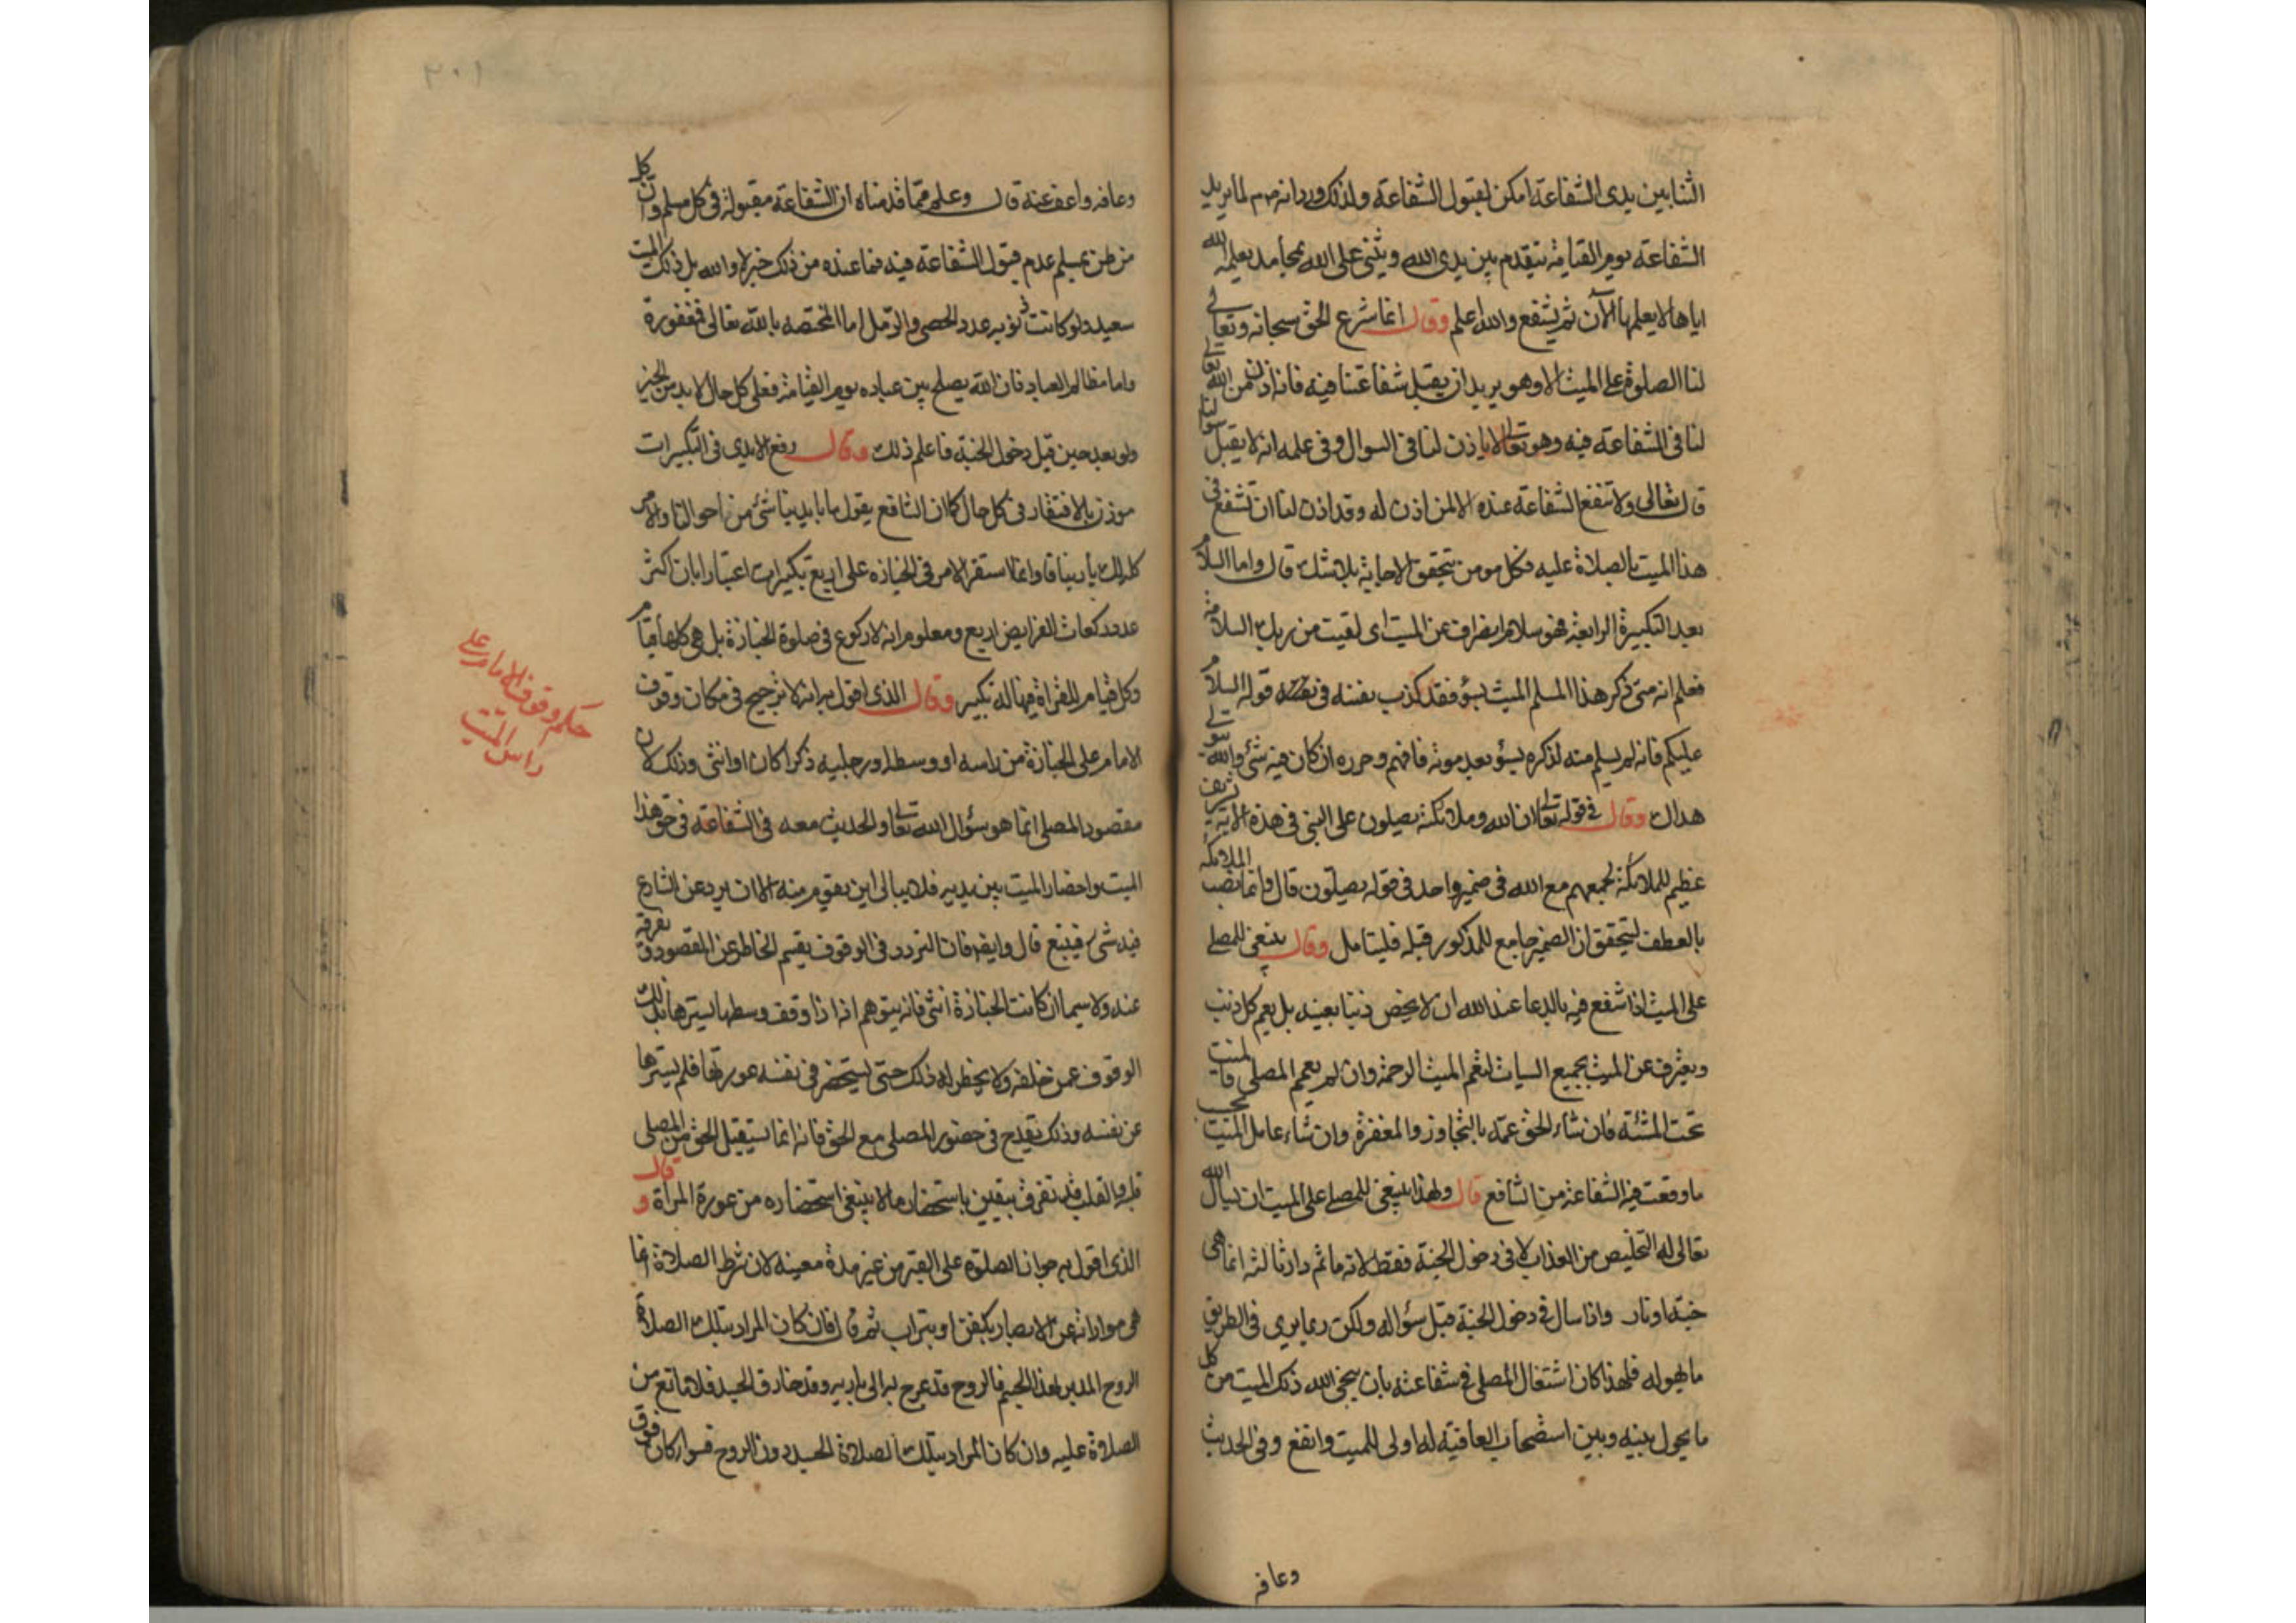 الثنا بين يدى الشفاعة امكن لقبول الشفاعة ولذلك ورد انه صم لما يريد
الشفاعة يوم القيامة يتقدم بين يدى الله ويثنى على الله بمحامد يعلمه الله
اياها لا يعلمها الآن ثم يشفع والله اعلم وقال انما شرع الحق سبحانه وتعالى
لنا الصلوة على الميت الا وهو يريد ان يقبل شفاعتنا فيه فانه اذن من الله تعالى
لنا فى الشفاعة فيه وهو تعالى لا ياذن لنا فى السوال وفى علمه انه لا يقبل سوالنا
قال تعالى ولا تنفع الشفاعة عنده الا لمن اذن له وقد اذن لنا ان نشفع فى
هذا الميت بالصلاة عليه فكل مومن يتحقق الاجابة بلا شك قال واما السلام
بعد التكبيرة الرابعة فهو سلام انصراف عن الميت اى لقيت من ربك السلامة
فعلم انه متى ذكر هذا المسلم الميت بسؤ فقد كذب نفسه فى قوله السلام
عليكم فانه لم يسلم منه لذكره بسؤ بعد موته فافهم وحرره ان كان فيه شئ والله يتولى
هداك وقال فى قوله تعالى ان الله وملائكته يصلون على النبى فى هذه الاية تشريف
عظيم للملائكة لجمعهم مع الله فى ضمير واحد فى قوله يصلون قال وانما نصب الملائكة
بالعطف ليتحقق ان الضمير جامع للمذكور قبله فليتامل وقال ينبغى للمصلى
على الميت اذا شفع فيه بالدعا عند الله ان لا يخص ذنبا بعينه بل يعم كل ذنب
ويعترف عن الميت بجميع السيات لتعم الميت الرحمة وان لم يعمم المصلى فالميت
تحت المشئة فان شاء الحق عمه بالتجاوز والمغفرة وان شاء عامل الميت بحسب
ما وقعت فيه الشفاعة من الشافع قال ولهذا ينبغى للمصلى على الميت ان يسال الله
تعالى له التخليص من العذاب لا فى دخول الجنة فقط لانه ما ثم دار ثالثه انما هى
جنة او نار واذا سال فى دخول الجنة قبل سؤاله ولكن ربما يرى فى الطريق
ما يهوله فلهذا كان اشتغال المصلى فى شفاعته بان ينجى الله ذلك الميت من كل
ما يحول بينه وبين استصحاب العافية له اولى للميت وانفع وفى الحديث
وعافه
وعافه واعف عنه قال وعلم مما قدمناه ان الشفاعة مقبولة فى كل مسلم وان كل
من ظن بمسلم عدم قبول الشفاعة فيه فما عنده من ذلك خبر لا والله بل ذلك الميت
سعيد ولو كانت ذنوبه عدد الحصى والرمل اما المختصه بالله تعالى فمغفورة
واما مظالم العباد فان الله يصلح بين عباده يوم القيامة فعلى كل حال لا بد من الخير
ولو بعد حين قبل دخول الجنة فاعلم ذلك وقال رفع الايدى فى التكبيرات
موذن بالافتقار فى كل حال كان الشافع يقول ما بايدينا شئ من احوالنا والامر
كله لك يا ربنا قال وانما استقر الامر فى الجنازه على اربع تكبيرات اعتبارا بان اكثر
عدد ركعات الفرايض اربع ومعلوم انه لا ركوع فى صلوة الجنازة بل هى كلها قيام
وكل قيام للقراة فيها له تكبير وقال الذى اقول به انه لا ترجيح فى مكان وقوف
الامام على الجنازة من راسه او وسطه او رجليه ذكرا كان او انثى وذلك لان
مقصود المصلى انما هو سؤال الله تعالى والحديث معه فى الشفاعة فى حق هذا
الميت واحضار الميت بين يديه فلا يبالى اين يقوم منه الا ان يرد عن الشارع
فيه شئ فيتبع قال وايضا فان التردد فى الوقوف يقسم الخاطر عن المقصود وتفرقه
عنه ولا سيما ان كانت الجنازة انثى فانه يتوهم انه اذا وقف وسطها يسترها بذلك
الوقوف عمن خلفه ولا يخطر له ذلك حتى يستحضر فى نفسه عورتها فلم يسترها
عن نفسه وذلك يقدح فى حضور المصلى مع الحق فانه انما يستقبل الحق من المصلى
قلبه والقلب قد تفرق بيقين باستحضار ما لا ينبغى استحضاره من عورة المراة وقال
الذى اقول به جواز الصلوة على القبر من غير مدة معينه لان شرط الصلاة انما
هى مواراته عن الابصار بكفن او بتراب ثم قال فان كان المراد بتلك الصلاة
الروح المدبر لهذا الجسم فالروح قد عرج به الى باريه وقد فارق الجسد فلا مانع من
الصلاة عليه وان كان المراد بتلك الصلاة الجسد دون الروح فسوا كان فوق
حكم وقوف الامام على
راس الميت